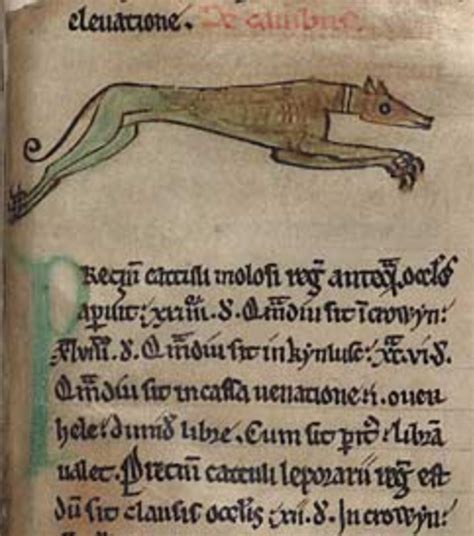 eleuatione. De canibus.
Preciū catculi molosi reḡ anteq̄ꝫ oculos
aꝑuit: xxiiii. đ. Qm̄diu sit ī crowyn:
xlviii. đ. Qm̄diu sit in kynllusc: xc.vi đ.
Qm̄diu sit in cassa uenatione .i. ouer
hele: dimiđ libre. Cum sit ꝑit᾽: librā
ualet. Preciū catculi leporarii reḡ est
dū sit clausis oculis xii. đ. In crowyn